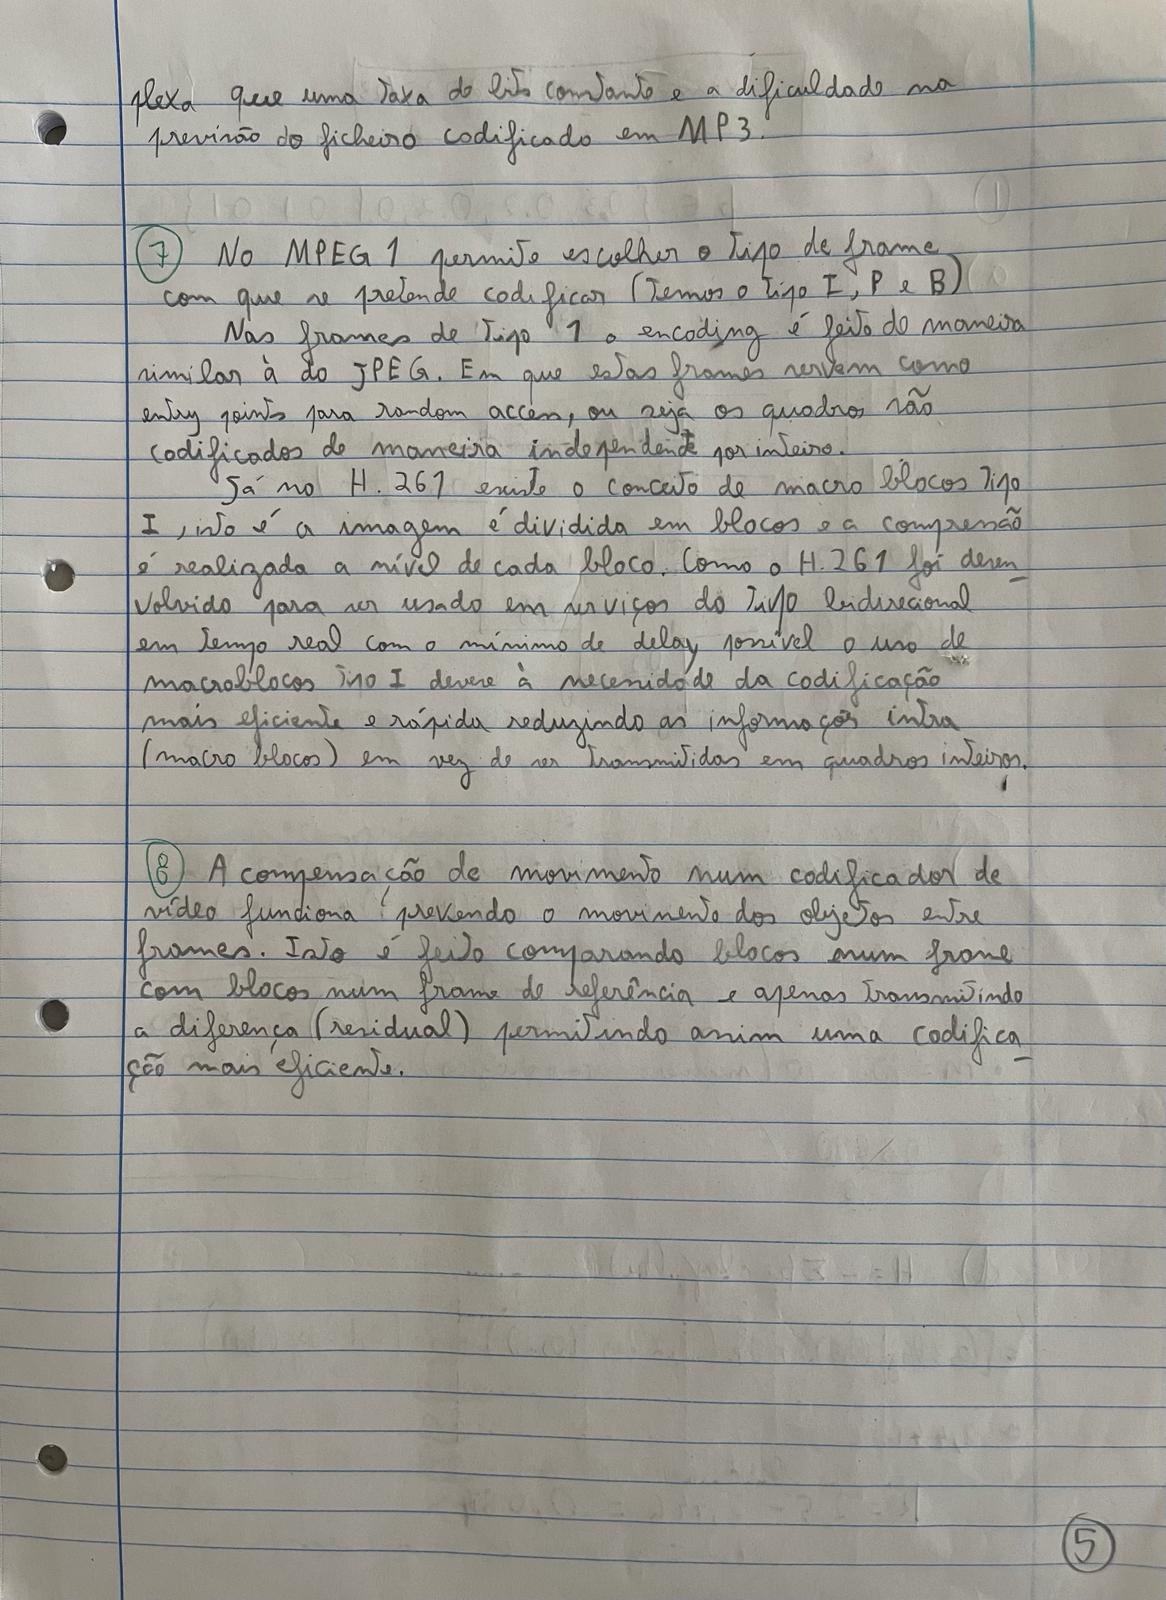 plexa que uma taxa de bits constante e a dificuldade na
previsão do ficheiro codificado em MP3.
7 No MPEG 1 permite escolher o tipo de frame
com que se pretende codificar (temos o tipo I, P e B)
Nas frames de tipo 1 o encoding é feito de maneira
similar à do JPEG. Em que estas frames servem como
entry points para random access, ou seja os quadros são
codificados de maneira independente por inteiro.
Já no H.261 existe o conceito de macro blocos tipo
I, isto é a imagem é dividida em blocos e a compressão
é realizada a nível de cada bloco. Como o H.261 foi desen_
volvido para ser usado em serviços do tipo bidirecional
em tempo real com o mínimo de delay possível o uso de
macroblocos tipo I deve se à necessidade da codificação
mais eficiente e rápida reduzindo as informações intra
(macro blocos) em vez de ser transmitidas em quadros inteiros.
8 A compensação de movimento num codificador de
vídeo funciona prevendo o movimento dos objetos entre
frames. Isto é feito comparando blocos num frame
com blocos num frame de referência e apenas transmitindo
a diferença (residual) permitindo assim uma codifica_
ção mais eficiente.
5